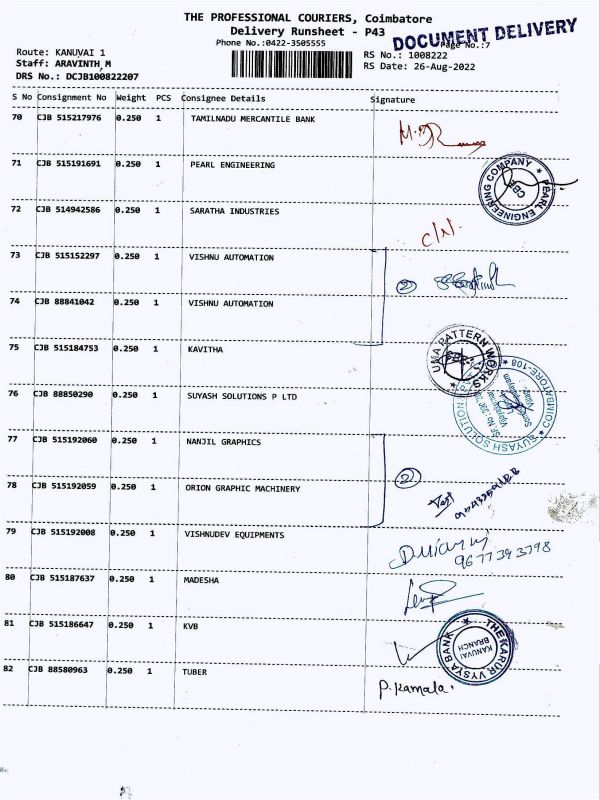 THE PROFESSIONAL COURIERS, Coimbatore
Delivery Runsheet - P43
Phone No.:0422-3505555
DOCUMENT DELIVERY
Page No.:7
Route: KANUVAI 1
Staff: ARAVINTH,M
DRS No.: DCJB100822207
RS No.: 1008222
RS Date: 26-Aug-2022
S No Consignment No Weight PCS Consignee Details Signature
70 CJB 515217976 0.250 1 TAMILNADU MERCANTILE BANK
71 CJB 515191691 0.250 1 PEARL ENGINEERING
PEARL ENGINEERING COMPANY
CBE
72 CJB 514942586 0.250 1 SARATHA INDUSTRIES
C/N.
73 CJB 515152297 0.250 1 VISHNU AUTOMATION
2
74 CJB 88841042 0.250 1 VISHNU AUTOMATION
75 CJB 515184753 0.250 1 KAVITHA
UMA PATTERN WORKS
76 CJB 88850290 0.250 1 SUYASH SOLUTIONS P LTD
SUYASH SOLUTION
COIMBATORE-108
77 CJB 515192060 0.250 1 NANJIL GRAPHICS
2
78 CJB 515192059 0.250 1 ORION GRAPHIC MACHINERY
79 CJB 515192008 0.250 1 VISHNUDEV EQUIPMENTS
9677393798
80 CJB 515187637 0.250 1 MADESHA
81 CJB 515186647 0.250 1 KVB
THE KARUR VYSYA BANK
KANUVAI
BRANCH
82 CJB 88580963 0.250 1 TUBER
P. Kamala.